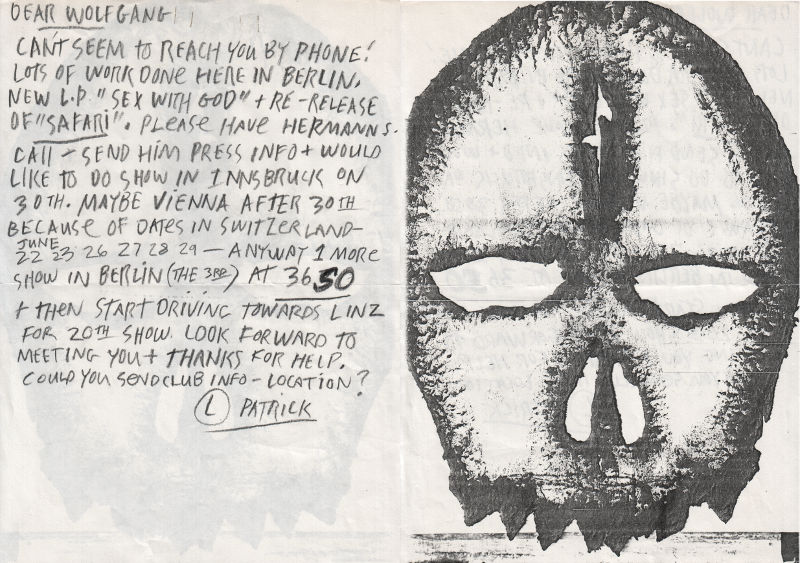 DEAR WOLFGANG
CAN'T SEEM to REACH YOU BY PHONE!
LOTS OF WORK DONE HERE IN BERLIN.
NEW L.P. "SEX WITH GOD" + RE-RELEASE
OF "SAFARI". PLEASE HAVE HERMANN S.
CALL - SEND HIM PRESS INFO + WOULD
LIKE TO DO SHOW IN INNSBRUCK ON
30TH. MAYBE VIENNA AFTER 30TH
BECAUSE OF DATES IN SWITZERLAND-
JUNE
22 23 26 27 28 29 — ANYWAY 1 MORE
SHOW IN BERLIN (THE 3RD) AT 36 SO
+ THEN START DRIVING TOWARDS LINZ
FOR 20TH SHOW. LOOK FORWARD TO
MEETING YOU + THANKS FOR HELP.
COULD YOU SEND CLUB INFO - LOCATION?
L PATRICK